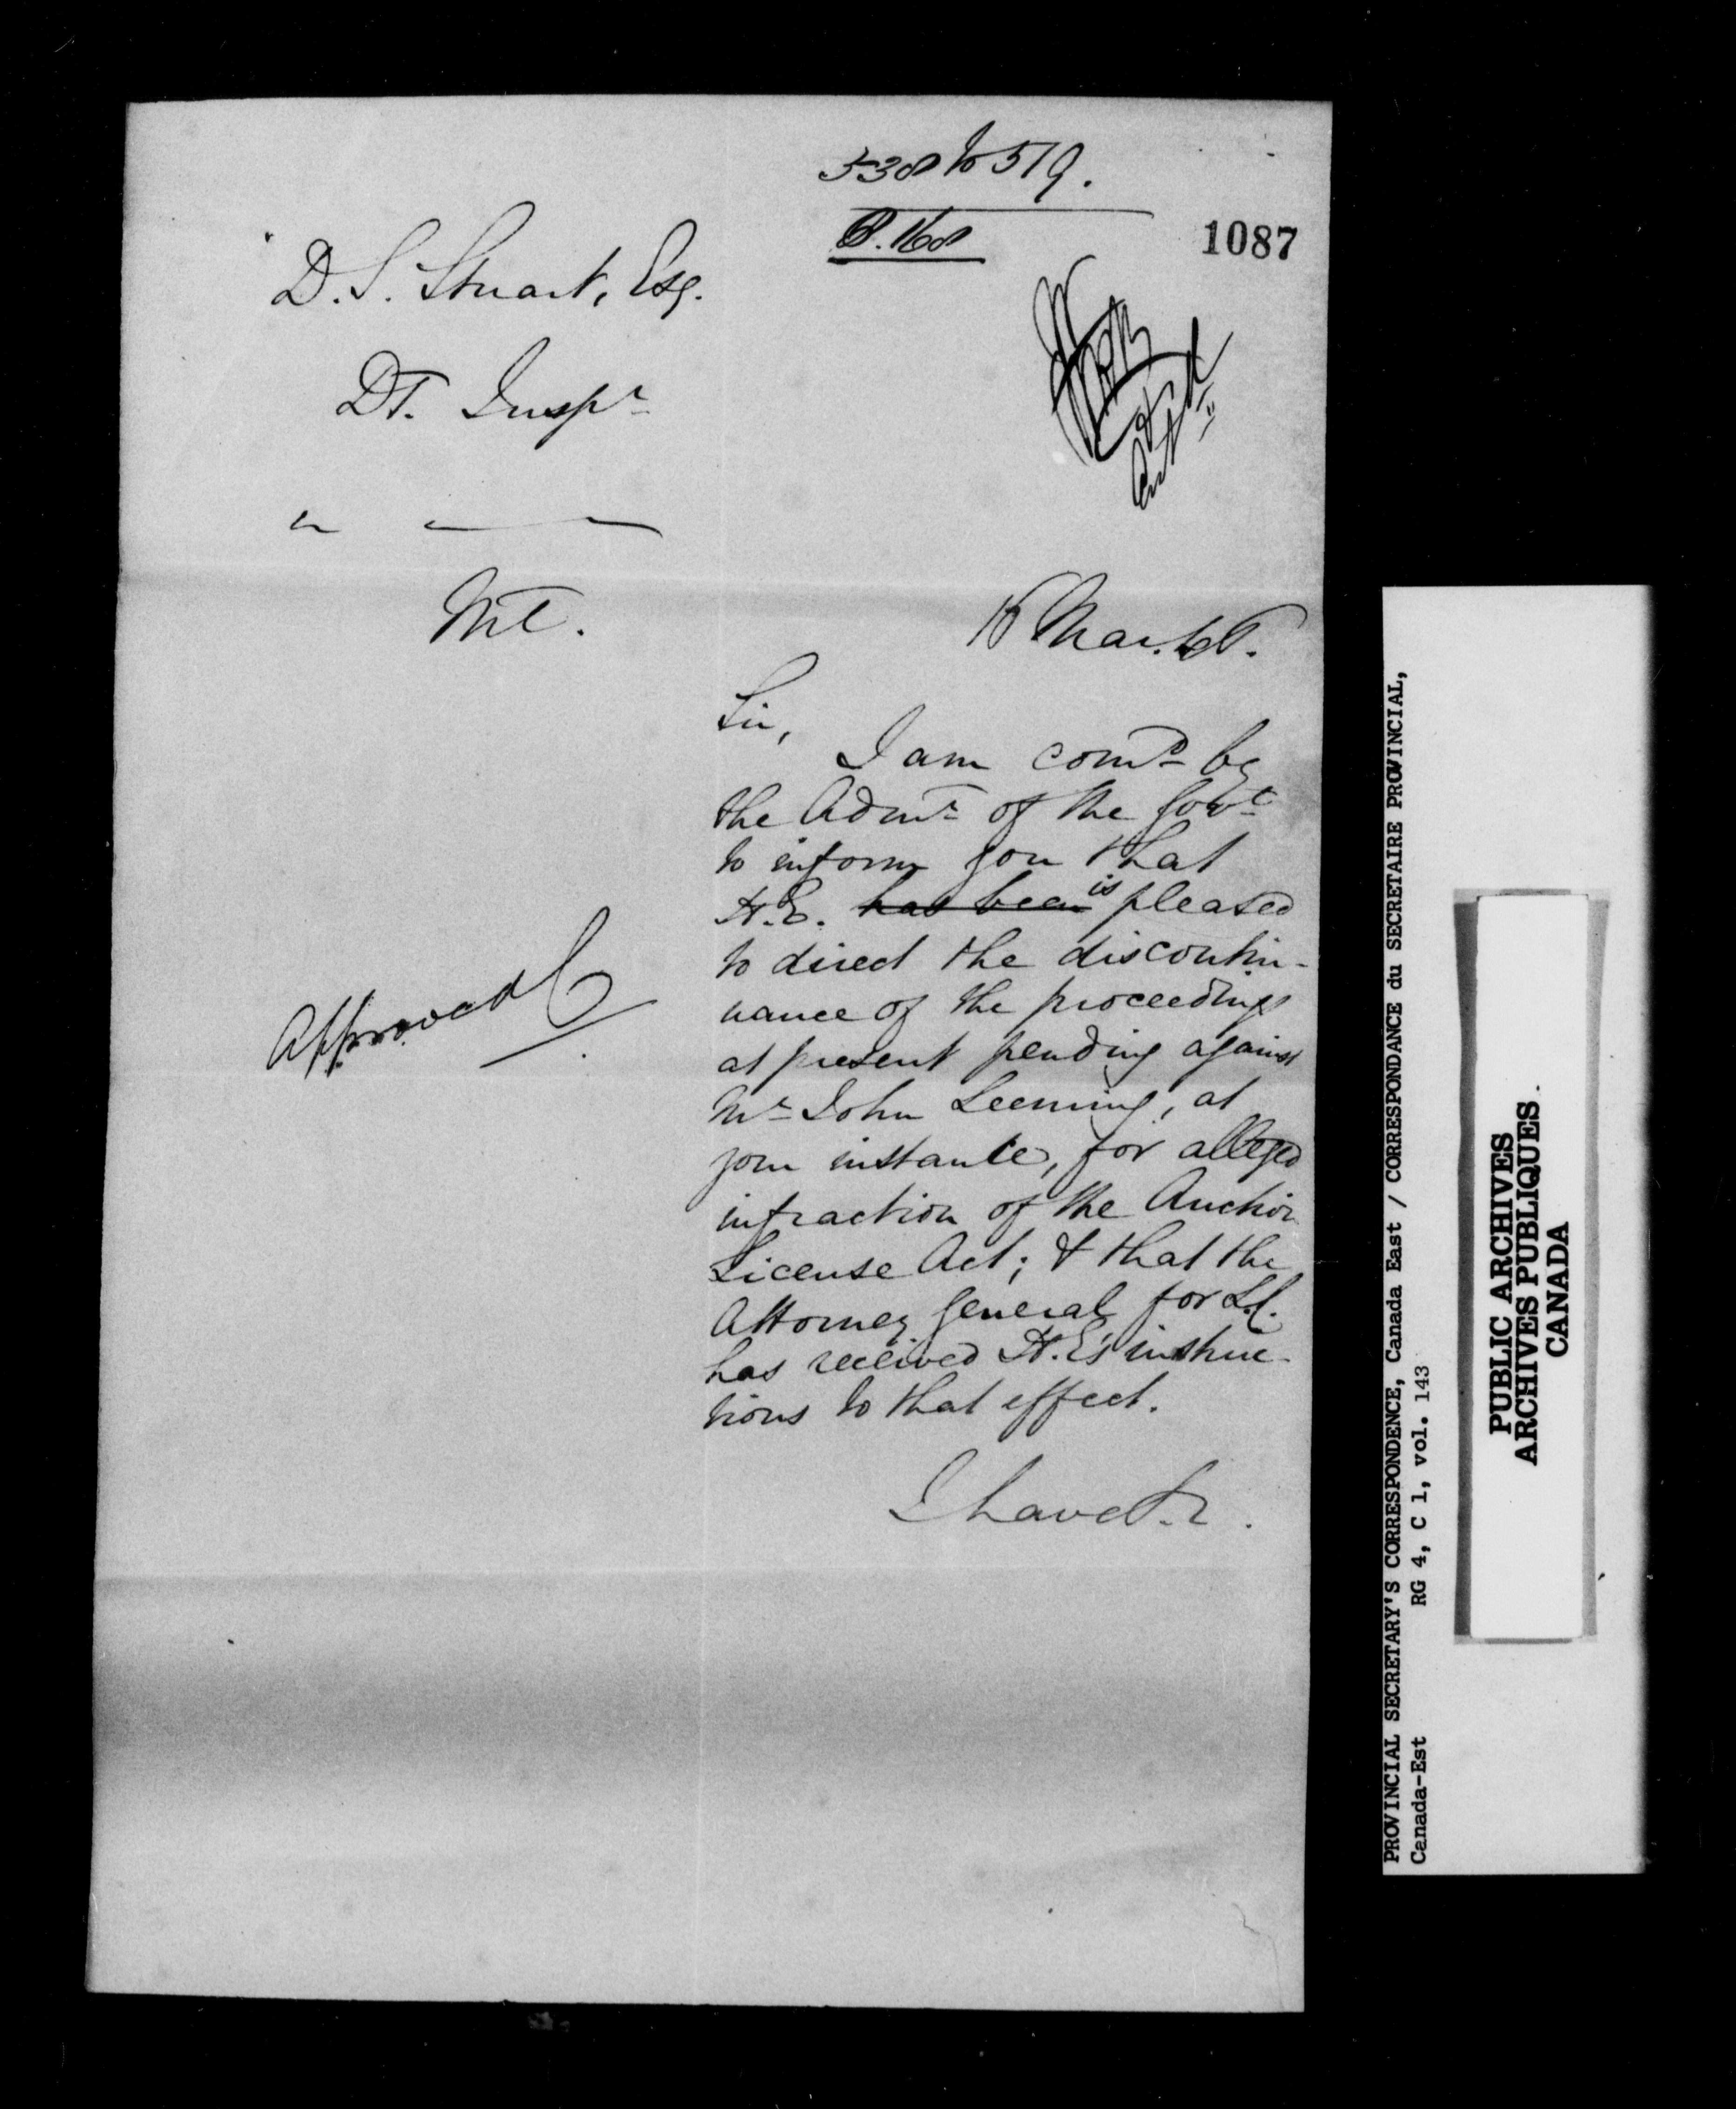 538 to 519.
B. 168
1087
D. S. Stuart, Esq.
DT. Inspr
Mtl.
Mar.
Sir,
I am comd by
the Admr of the Govt
to inform you that
H.E. has been is pleased
to direct the discontin-
uance of the proceedings
at present pending against
Mr John Leeming, at
your instance, for alleged
infraction of the Auction
License Act; & that the
Attorney General for L.C.
has received H.E's instruc-
tions to that effect.
I have &c.
Approved
PROVINCIAL SECRETARY'S CORRESPONDENCE, Canada East / CORRESPONDANCE du SECRETAIRE PROVINCIAL,
Canada-Est RG 4, C 1, vol. 143
PUBLIC ARCHIVES
ARCHIVES PUBLIQUES
CANADA